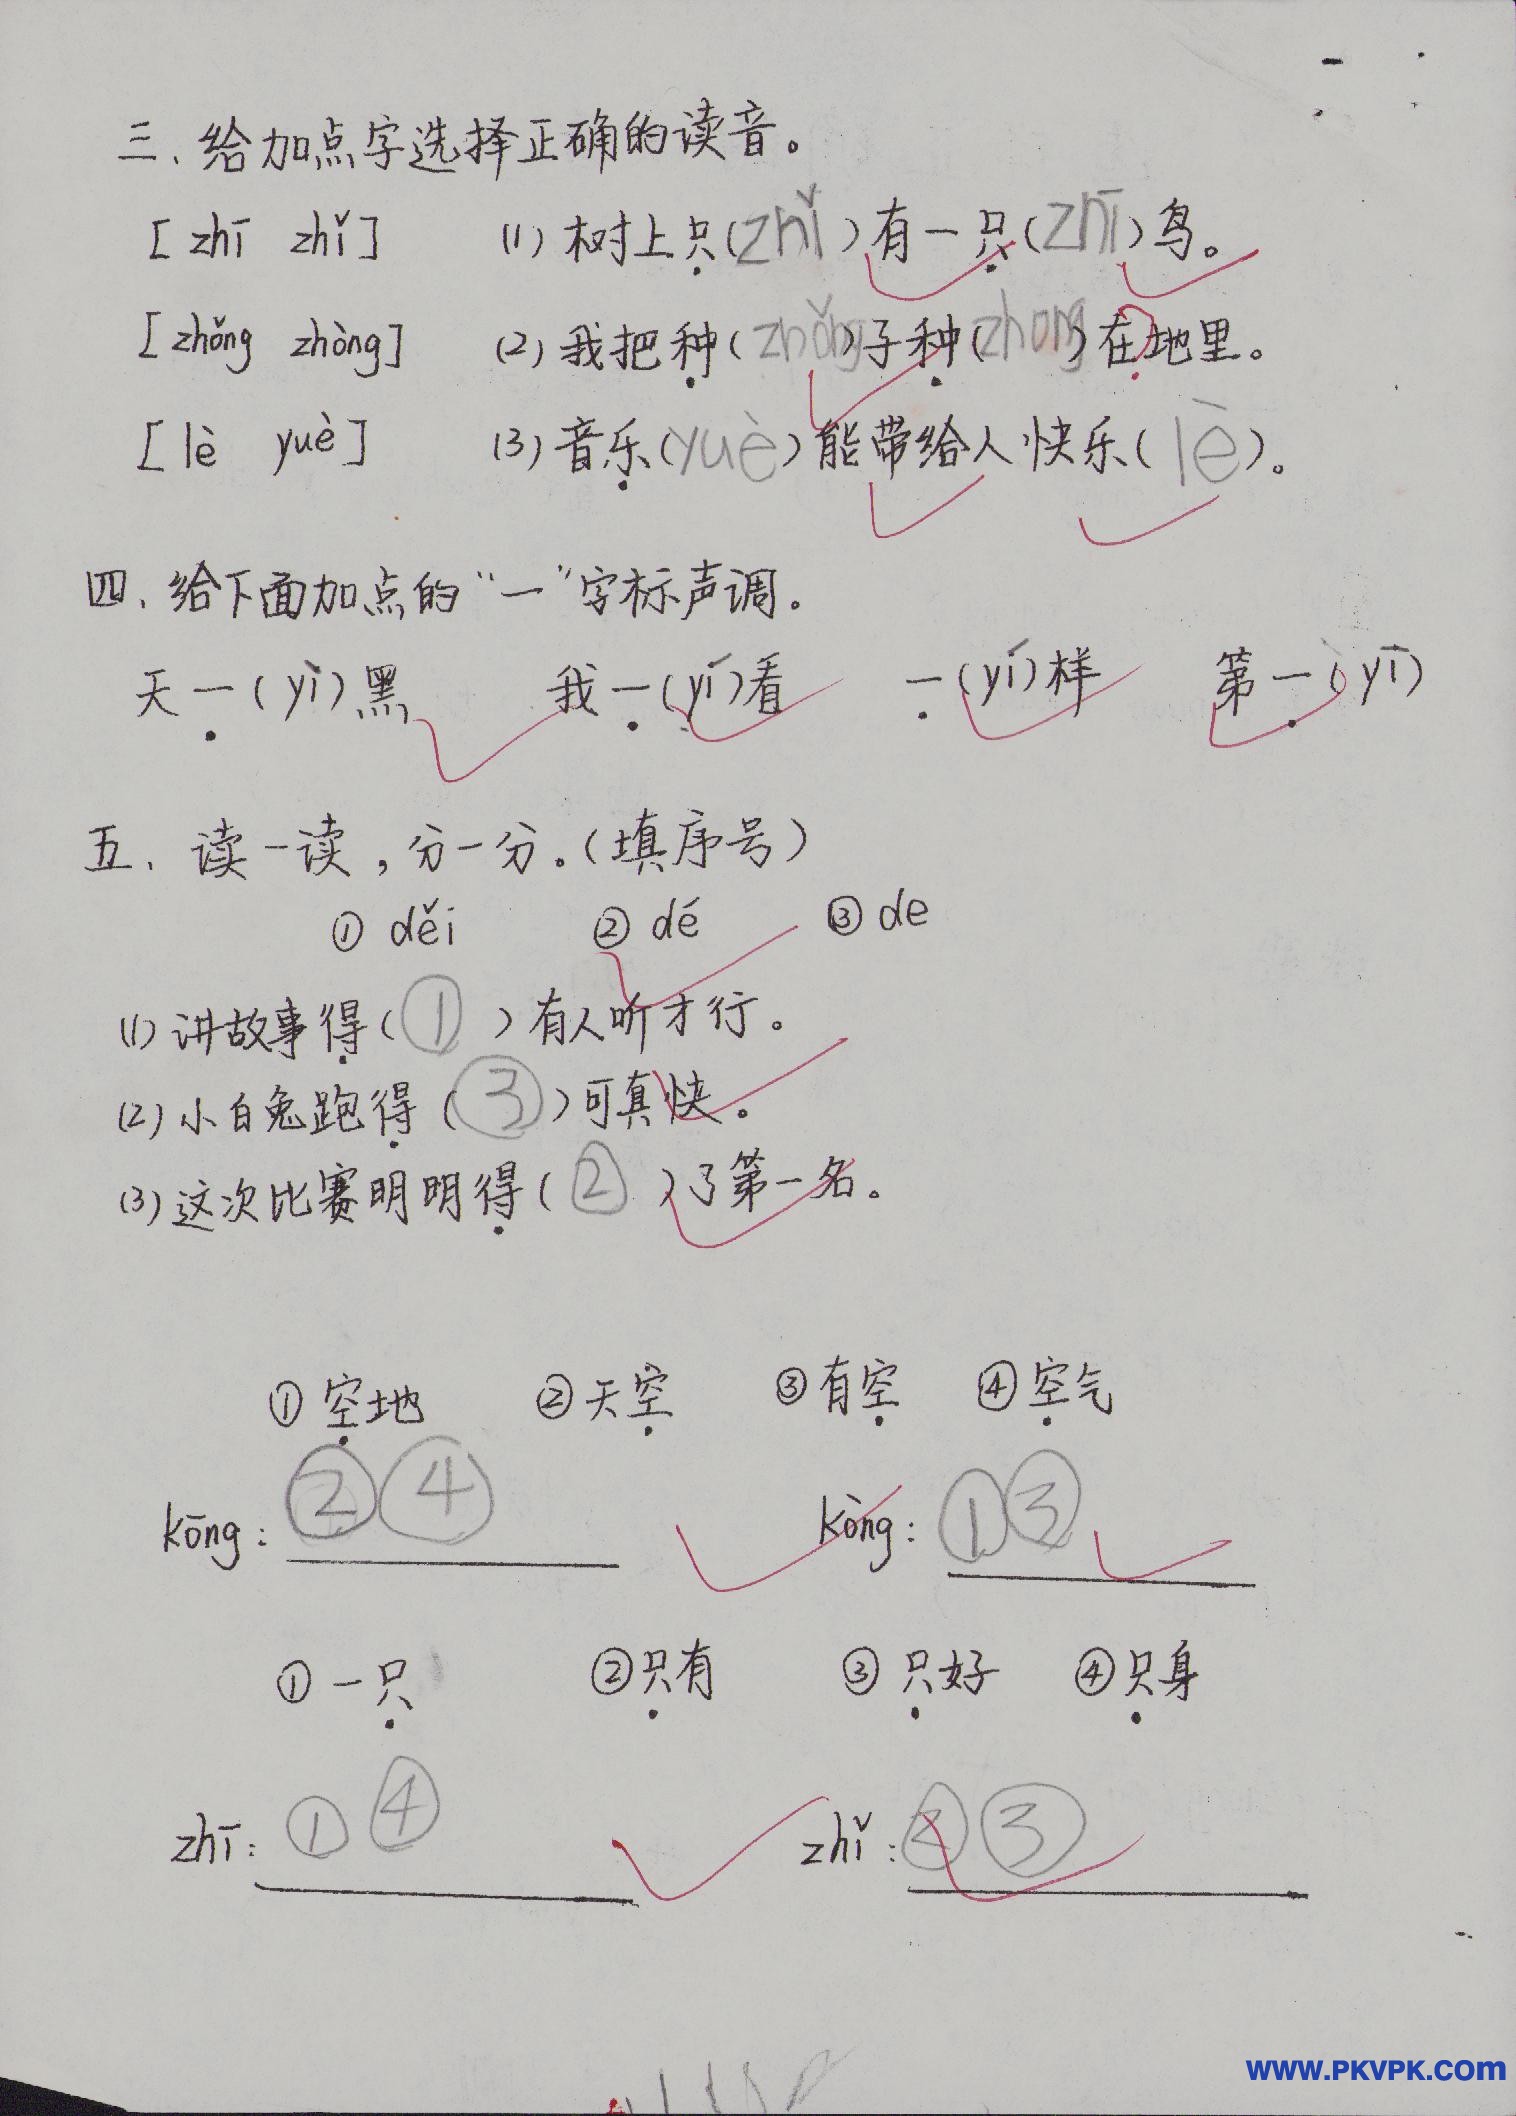 三、给加点字选择正确的读音。
[zhī zhǐ] (1)树上只(zhǐ)有一只(zhī)鸟。
[zhǒng zhòng] (2)我把种(zhǒng)子种(zhong)在地里。
[lè yuè] (3)音乐(yuè)能带给人快乐(lè)。
四、给下面加点的“一”字标声调。
天一(yì)黑 我一(yí)看 一(yí)样 第一(yī)
五、读一读,分一分。(填序号)
① děi ② dé ③ de
(1)讲故事得(①)有人听才行。
(2)小白兔跑得(③)可真快。
(3)这次比赛明明得(②)了第一名。
①空地 ②天空 ③有空 ④空气
kōng: ②④ kòng: ①③
①一只 ②只有 ③只好 ④只身
zhī: ①④ zhǐ: ②③
www.PKVPK.com